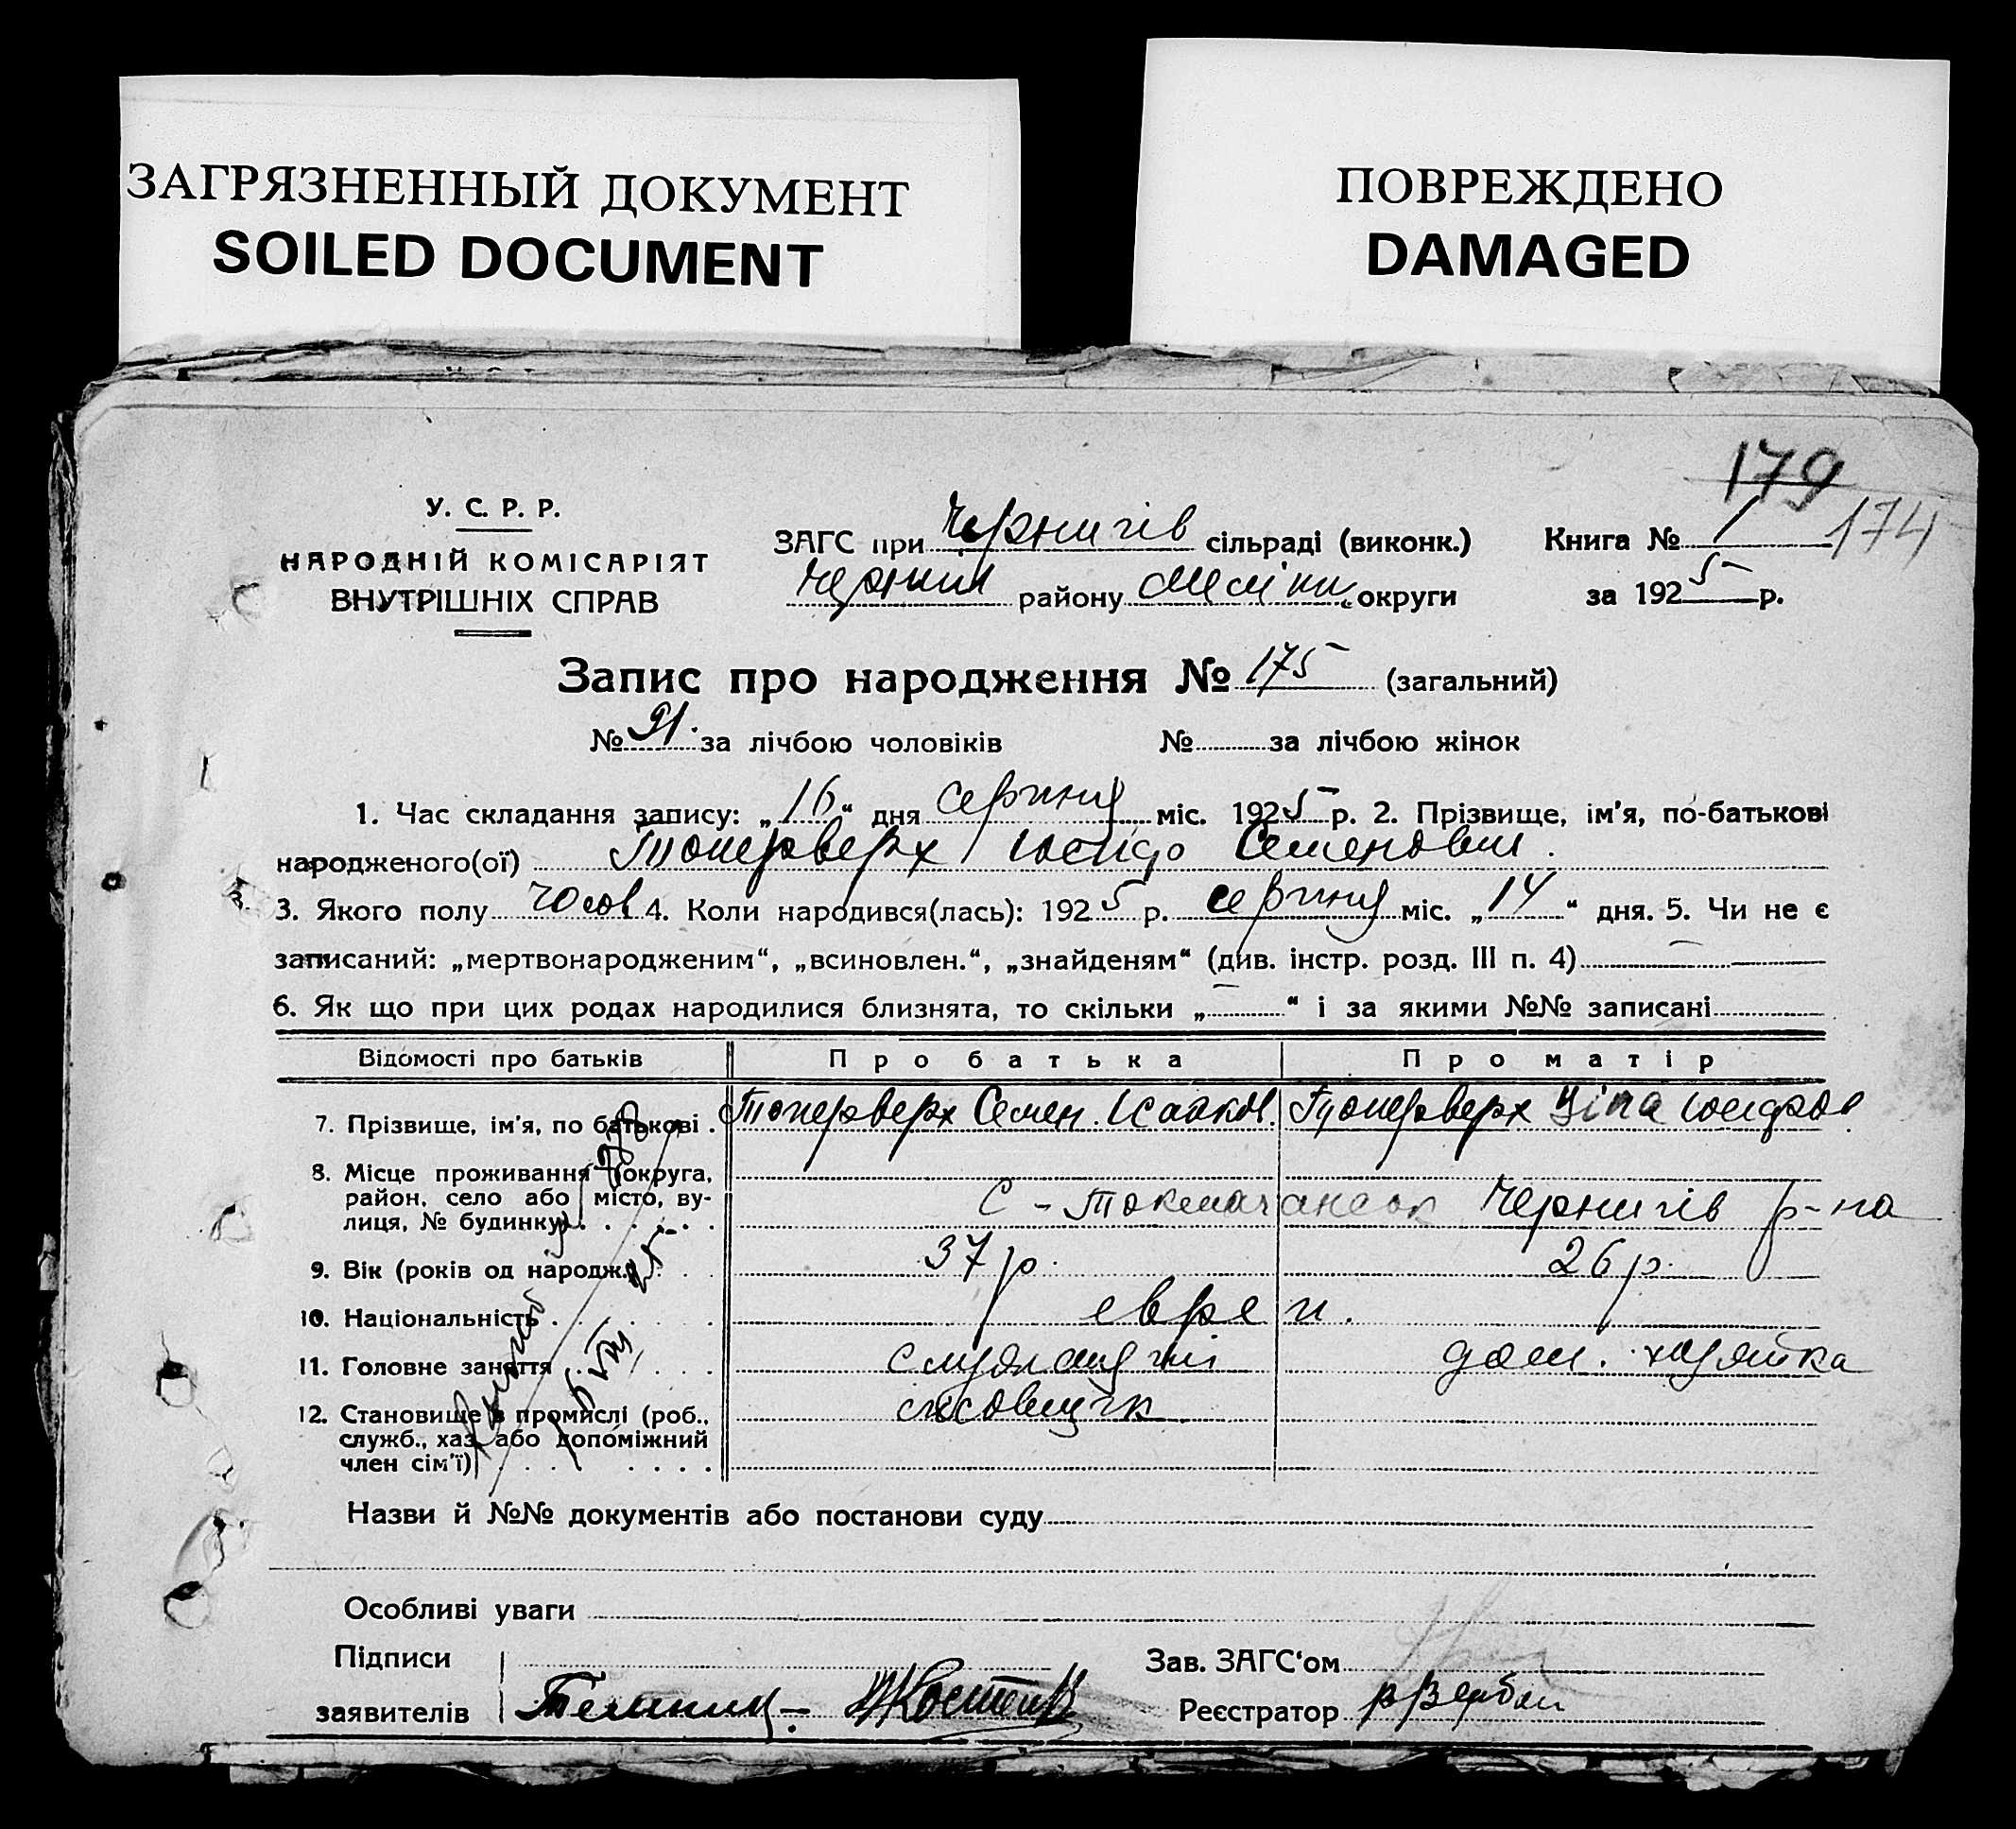 ЗАГРЯЗНЕННЫЙ ДОКУМЕНТ
SOILED DOCUMENT
ПОВРЕЖДЕНО
DAMAGED
179
174
У. С. Р. Р.
НАРОДНІЙ КОМІСАРІЯТ
ВНУТРІШНІХ СПРАВ
ЗАГС при Чернигів сільраді (виконк.)
Черниг району округи
Книга № 1
за 1925 р.
Запис про народження № 175 (загальний)
№ 91. за лічбою чоловіків № за лічбою жінок
1. Час складання запису: „16“ дня серпня міс. 1925 р. 2. Прізвище, ім'я, по-батькові
народженого(ої) Топерверх Семенович.
3. Якого полу чолов 4. Коли народився(лась): 1925 р. серпня міс. „14“ дня. 5. Чи не є
записаний: „мертвонародженим“, „всиновлен.“, „знайденям“ (див. інстр. розд. III п. 4) —
6. Як що при цих родах народилися близнята, то скільки „—“ і за якими №№ записані
Відомості про батьків Про батька Про матір
7. Прізвище, ім'я, по батькові . Топерверх Семен. Исааков. Топерверх Ціпа
8. Місце проживання (округа,
район, село або місто, ву-
лиця, № будинку) . . . . . . с - Чернигів р-на
9. Вік (років од народж.) . . . 37 р. 26 р.
10. Національність . . . . . евреи.
11. Головне заняття . . . . . дом. хазяйка
12. Становище в промислі (роб.,
служб., хаз. або допоміжний
член сім'ї) . . . . . . . .
Назви й №№ документів або постанови суду
Особливі уваги
Підписи
заявителів
Зав. ЗАГС'ом
Реєстратор